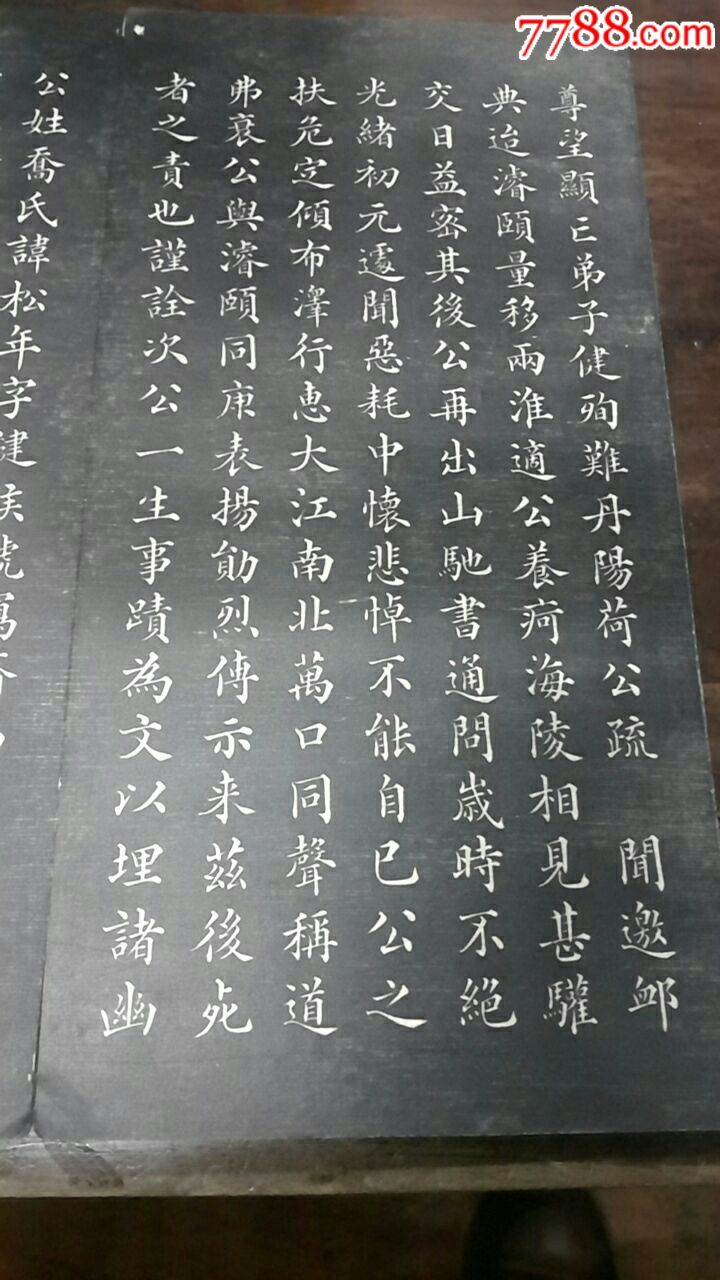 7788.com
尊望顯亡弟子健殉難丹陽荷公疏 聞邀卹
典迨濬頤量移兩淮適公養疴海陵相見甚驩
交日益密其後公再出山馳書通問歲時不絕
光緒初元遽聞惡耗中懷悲悼不能自已公之
扶危定傾布澤行惠大江南北萬口同聲稱道
弗衰公與濬頤同庚表揚勛烈傳示来茲後死
者之責也謹詮次公一生事蹟為文以埋諸幽
公姓喬氏諱松年字健矦號鶴